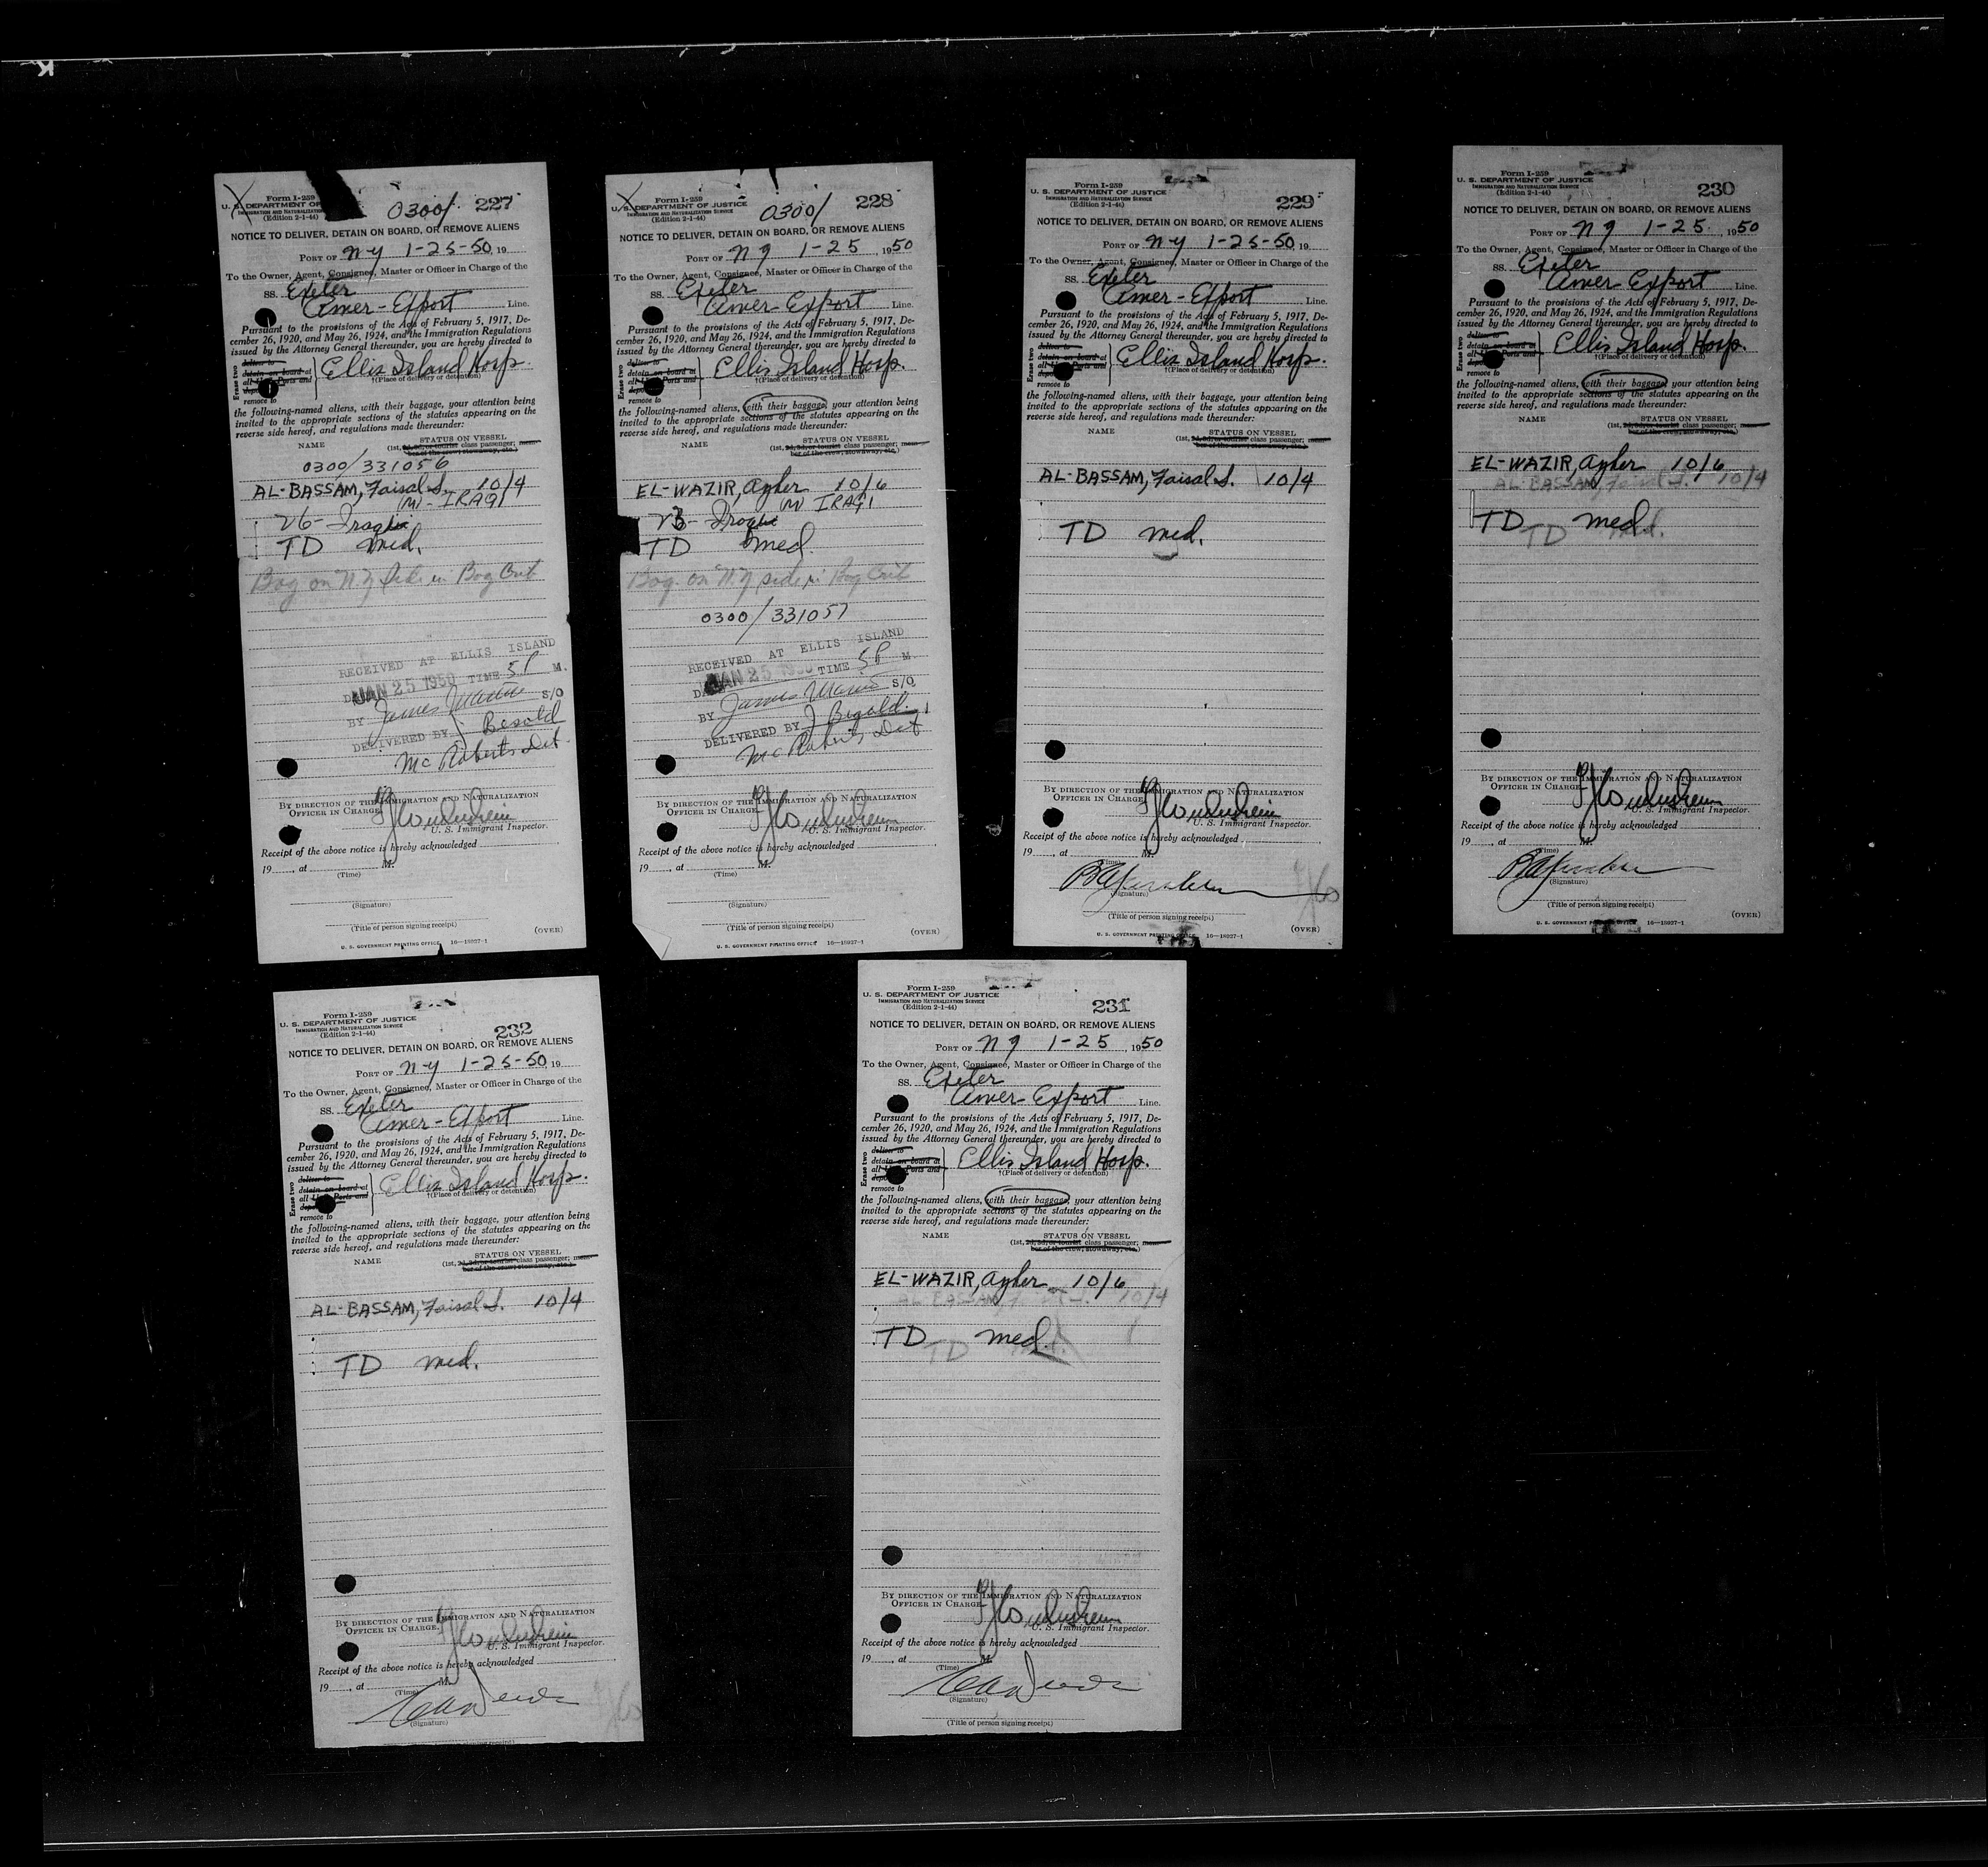 K
Form I-259
U. S. DEPARTMENT OF
IMMIGRATION AND NATURALIZATION SERVICE
(Edition 2-1-44)
0300/ 227
NOTICE TO DELIVER, DETAIN ON BOARD, OR REMOVE ALIENS
PORT OF N-Y 1-25-50, 19
To the Owner, Agent, Consignee, Master or Officer in Charge of the
SS. Exeter
Amer-Export Line.
Pursuant to the provisions of the Acts of February 5, 1917, De-
cember 26, 1920, and May 26, 1924, and the Immigration Regulations
issued by the Attorney General thereunder, you are hereby directed to
Erase two
deliver to
detain on board at
all Ports and
remove to
Ellis Island Hosp.
†(Place of delivery or detention)
the following-named aliens, with their baggage, your attention being
invited to the appropriate sections of the statutes appearing on the
reverse side hereof, and regulations made thereunder:
NAME STATUS ON VESSEL
(1st, 2d, 3d, or tourist class passenger; mem-
ber of the crew, stowaway, etc.)
0300/331056
AL-BASSAM, Faisal S. 10/4
(M) - IRAQI
26-
TD med.
Bag on N.Y side in Bag
RECEIVED AT ELLIS ISLAND
DA JAN 25 1950 TIME 5P M.
BY James S/O
DELIVERED BY J Besold
McRoberts Det.
BY DIRECTION OF THE IMMIGRATION AND NATURALIZATION
OFFICER IN CHARGE.
U. S. Immigrant Inspector.
Receipt of the above notice is hereby acknowledged
19, at M.
(Time)
(Signature)
(Title of person signing receipt)
(OVER)
U. S. GOVERNMENT PRINTING OFFICE 16-18927-1
Form I-259
U. S. DEPARTMENT OF JUSTICE
IMMIGRATION AND NATURALIZATION SERVICE
(Edition 2-1-44)
0300/ 228
NOTICE TO DELIVER, DETAIN ON BOARD, OR REMOVE ALIENS
PORT OF NY 1-25, 1950
To the Owner, Agent, Consignee, Master or Officer in Charge of the
SS. Exeter
Amer Export Line.
Pursuant to the provisions of the Acts of February 5, 1917, De-
cember 26, 1920, and May 26, 1924, and the Immigration Regulations
issued by the Attorney General thereunder, you are hereby directed to
Erase two
deliver to
detain on board at
all Ports and
remove to
Ellis Island Hosp.
†(Place of delivery or detention)
the following-named aliens, with their baggage, your attention being
invited to the appropriate sections of the statutes appearing on the
reverse side hereof, and regulations made thereunder:
NAME STATUS ON VESSEL
(1st, 2d, 3d, or tourist class passenger; mem-
ber of the crew, stowaway, etc.)
EL-WAZIR, Azher 10/6
(M) IRAQI
TD med.
Bag. on N.Y side in Bag
0300/331057
RECEIVED AT ELLIS ISLAND
DA JAN 25 1950 TIME 5P M.
BY James S/O
DELIVERED BY J Besold.
McRoberts Det
BY DIRECTION OF THE IMMIGRATION AND NATURALIZATION
OFFICER IN CHARGE.
U. S. Immigrant Inspector.
Receipt of the above notice is hereby acknowledged
19, at M.
(Time)
(Signature)
(Title of person signing receipt)
(OVER)
U. S. GOVERNMENT PRINTING OFFICE 16-18927-1
Form I-259
U. S. DEPARTMENT OF JUSTICE
IMMIGRATION AND NATURALIZATION SERVICE
(Edition 2-1-44)
229
NOTICE TO DELIVER, DETAIN ON BOARD, OR REMOVE ALIENS
PORT OF N-Y 1-25-50, 19
To the Owner, Agent, Consignee, Master or Officer in Charge of the
SS. Exeter
Amer-Export Line.
Pursuant to the provisions of the Acts of February 5, 1917, De-
cember 26, 1920, and May 26, 1924, and the Immigration Regulations
issued by the Attorney General thereunder, you are hereby directed to
Erase two
deliver to
detain on board at
all Ports and
remove to
Ellis Island Hosp.
†(Place of delivery or detention)
the following-named aliens, with their baggage, your attention being
invited to the appropriate sections of the statutes appearing on the
reverse side hereof, and regulations made thereunder:
NAME STATUS ON VESSEL
(1st, 2d, 3d, or tourist class passenger; mem-
ber of the crew, stowaway, etc.)
AL-BASSAM, Faisal S. 10/4
TD med.
BY DIRECTION OF THE IMMIGRATION AND NATURALIZATION
OFFICER IN CHARGE.
U. S. Immigrant Inspector.
Receipt of the above notice is hereby acknowledged
19, at M.
(Time)
(Signature)
(Title of person signing receipt)
(OVER)
U. S. GOVERNMENT PRINTING OFFICE 16-18927-1
Form I-259
U. S. DEPARTMENT OF JUSTICE
IMMIGRATION AND NATURALIZATION SERVICE
(Edition 2-1-44)
230
NOTICE TO DELIVER, DETAIN ON BOARD, OR REMOVE ALIENS
PORT OF NY 1-25, 1950
To the Owner, Agent, Consignee, Master or Officer in Charge of the
SS. Exeter
Amer Export Line.
Pursuant to the provisions of the Acts of February 5, 1917, De-
cember 26, 1920, and May 26, 1924, and the Immigration Regulations
issued by the Attorney General thereunder, you are hereby directed to
Erase two
deliver to
detain on board at
all Ports and
remove to
Ellis Island Hosp.
†(Place of delivery or detention)
the following-named aliens, with their baggage, your attention being
invited to the appropriate sections of the statutes appearing on the
reverse side hereof, and regulations made thereunder:
NAME STATUS ON VESSEL
(1st, 2d, 3d, or tourist class passenger; mem-
ber of the crew, stowaway, etc.)
EL-WAZIR, Azher 10/6
AL-BASSAM, Faisal S. 10/4
TD med.
TD med.
BY DIRECTION OF THE IMMIGRATION AND NATURALIZATION
OFFICER IN CHARGE.
U. S. Immigrant Inspector.
Receipt of the above notice is hereby acknowledged
19, at M.
(Time)
(Signature)
(Title of person signing receipt)
(OVER)
U. S. GOVERNMENT PRINTING OFFICE 16-18927-1
Form I-259
U. S. DEPARTMENT OF JUSTICE
IMMIGRATION AND NATURALIZATION SERVICE
(Edition 2-1-44)
232
NOTICE TO DELIVER, DETAIN ON BOARD, OR REMOVE ALIENS
PORT OF N-Y 1-25-50, 19
To the Owner, Agent, Consignee, Master or Officer in Charge of the
SS. Exeter
Amer-Export Line.
Pursuant to the provisions of the Acts of February 5, 1917, De-
cember 26, 1920, and May 26, 1924, and the Immigration Regulations
issued by the Attorney General thereunder, you are hereby directed to
Erase two
deliver to
detain on board at
all Ports and
remove to
Ellis Island Hosp.
†(Place of delivery or detention)
the following-named aliens, with their baggage, your attention being
invited to the appropriate sections of the statutes appearing on the
reverse side hereof, and regulations made thereunder:
NAME STATUS ON VESSEL
(1st, 2d, 3d, or tourist class passenger; mem-
ber of the crew, stowaway, etc.)
AL-BASSAM, Faisal S. 10/4
TD med.
BY DIRECTION OF THE IMMIGRATION AND NATURALIZATION
OFFICER IN CHARGE.
U. S. Immigrant Inspector.
Receipt of the above notice is hereby acknowledged
19, at M.
(Time)
(Signature)
Form I-259
U. S. DEPARTMENT OF JUSTICE
IMMIGRATION AND NATURALIZATION SERVICE
(Edition 2-1-44)
231
NOTICE TO DELIVER, DETAIN ON BOARD, OR REMOVE ALIENS
PORT OF NY 1-25, 1950
To the Owner, Agent, Consignee, Master or Officer in Charge of the
SS. Exeter
Amer-Export Line.
Pursuant to the provisions of the Acts of February 5, 1917, De-
cember 26, 1920, and May 26, 1924, and the Immigration Regulations
issued by the Attorney General thereunder, you are hereby directed to
Erase two
deliver to
detain on board at
all Ports and
remove to
Ellis Island Hosp.
†(Place of delivery or detention)
the following-named aliens, with their baggage, your attention being
invited to the appropriate sections of the statutes appearing on the
reverse side hereof, and regulations made thereunder:
NAME STATUS ON VESSEL
(1st, 2d, 3d, or tourist class passenger; mem-
ber of the crew, stowaway, etc.)
EL-WAZIR, Azher 10/6
AL-BASSAM, 10/4
TD med.
TD
BY DIRECTION OF THE IMMIGRATION AND NATURALIZATION
OFFICER IN CHARGE.
U. S. Immigrant Inspector.
Receipt of the above notice is hereby acknowledged
19, at M.
(Time)
(Signature)
(Title of person signing receipt)